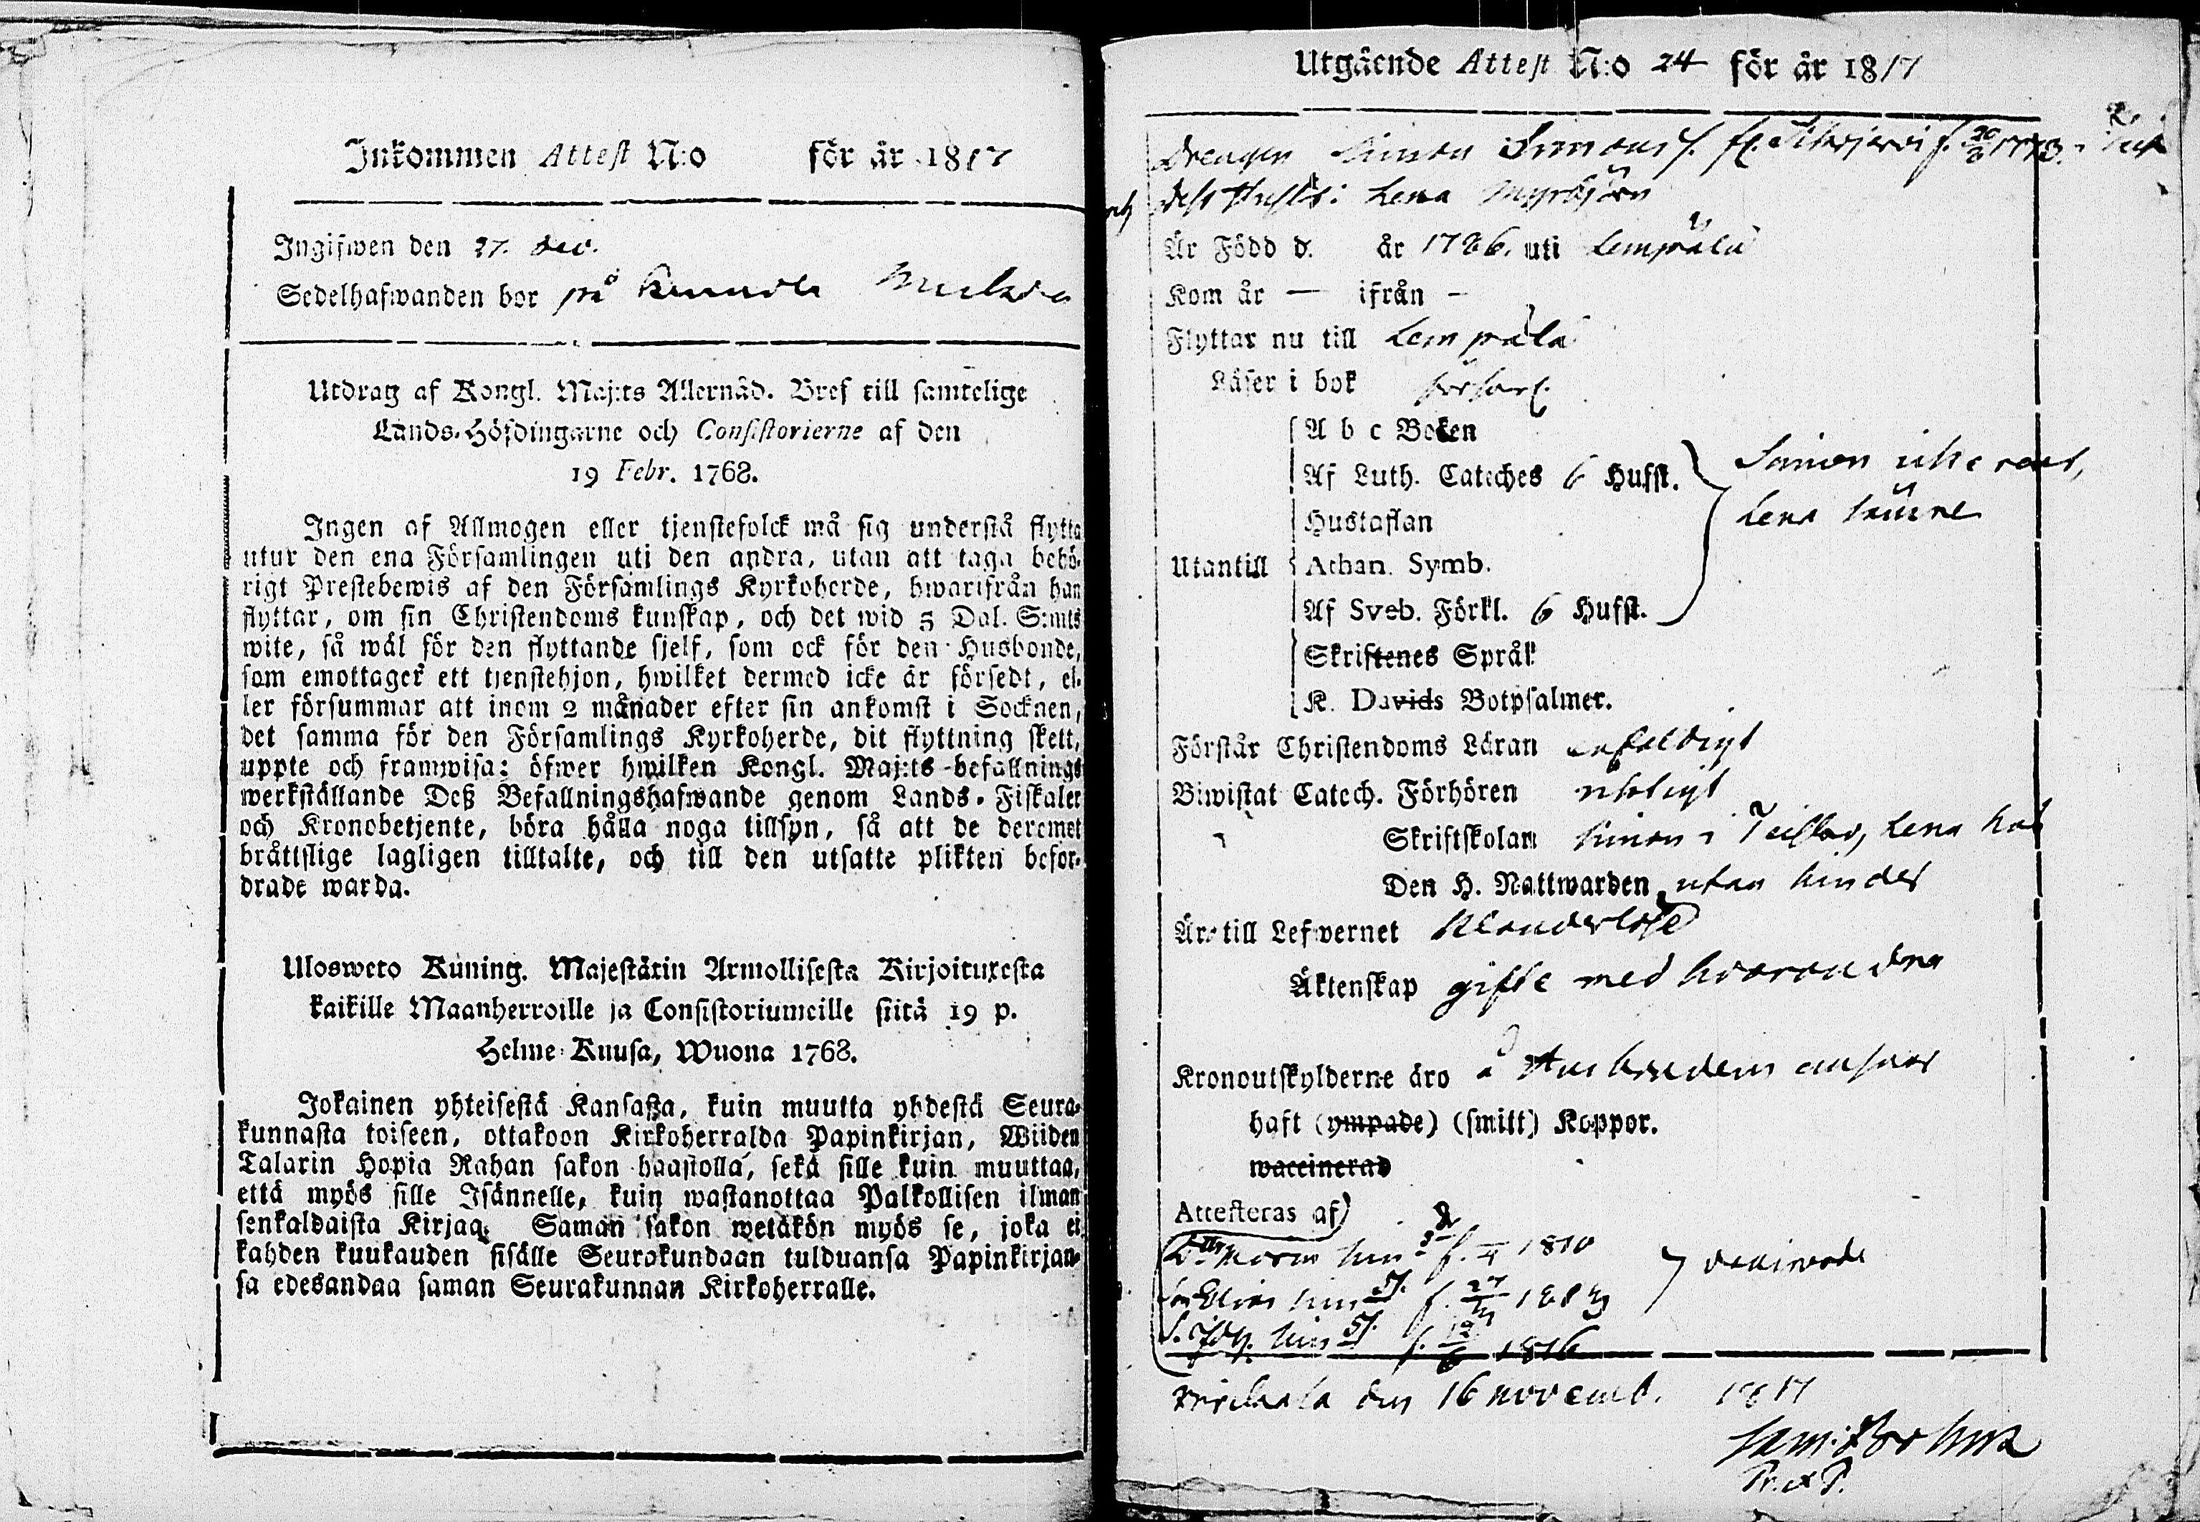 Inkommen Attest N:o för år 1817
Ingifwen den 27. dec.
Sedelhafwanden bor på
Utdrag af Kongl. Maj:ts Allernåd. Bref till samtelige
Lands-Höfdingarne och Consistorierne af den
19 Febr. 1768.
Ingen af Allmogen eller tjenstefolck må sig understå flytta
utur den ena Församlingen uti den andra, utan att taga behö-
rigt Prestebewis af den Församlings Kyrkoherde, hwarifrån han
flyttar, om sin Christendoms kunskap, och det wid 5 Dal. S:mts
wite, så wäl för den flyttande sjelf, som ock för den Husbonde,
som emottager ett tjenstehjon, hwilket dermed icke är försedt, el-
ler försummar att inom 2 månader efter sin ankomst i Socknen,
det samma för den Församlings Kyrkoherde, dit flyttning skett,
uppte och framwisa: öfwer hwilken Kongl. Maj:ts befallnings
werkställande Deß Befallningshafwande genom Lands-Fiskaler
och Kronobetjente, böra hålla noga tillsyn, så att de deremot
bråttslige lagligen tilltalte, och till den utsatte plikten befor-
drade warda.
Ulosweto Kuning. Majestätin Armollisesta Kirjoituxesta
kaikille Maanherroille ja Consistoriumeille siitä 19 p.
Helme-Kuusa, Wuona 1768.
Jokainen yhteisestä Kansaßa, kuin muutta yhdestä Seura-
kunnasta toiseen, ottakoon Kirkoherralda Papinkirjan, Wiiden
Talarin Hopia Rahan sakon haastolla, sekä sille kuin muuttaa,
että myös sille Isännelle, kuin wastanottaa Palkollisen ilman
senkaldaista Kirjaa. Saman sakon wetäkön myös se, joka ei
kahden kuukauden sisälle Seurakundaan tulduansa Papinkirjan-
sa edesandaa saman Seurakunnan Kirkoherralle.
Utgående Attest N:o 24 för år 1817
Drengen Simon Simonss.
Lena
Är Född d. år 1786. uti Lempälä
Kom år — ifrån –
Flyttar nu till Lempälä
Läser i bok
A b c Boken
Af Luth. Cateches 6 Hufst. Simon
Hustaflan Lena
Utantill Athan. Symb.
Af Sveb. Förkl. 6 Hufst.
Skriftenes Språk
K. Davids Botpsalmer.
Förstår Christendoms Läran enfaldigt
Biwistat Catech. Förhören riktigt
Skriftskolan Simon i Lena här
Den H. Nattwarden utan hinder
Är till Lefwernet klanderlöse
Äktenskap gifte med hvarandra
Kronoutskylderne äro å Husbondens ansvar
haft (ympade) (smitt) Koppor.
waccinerad
Attesteras af
1810
27 vaccinerade
1816
den 16 novemb. 1817
Pr. et P.